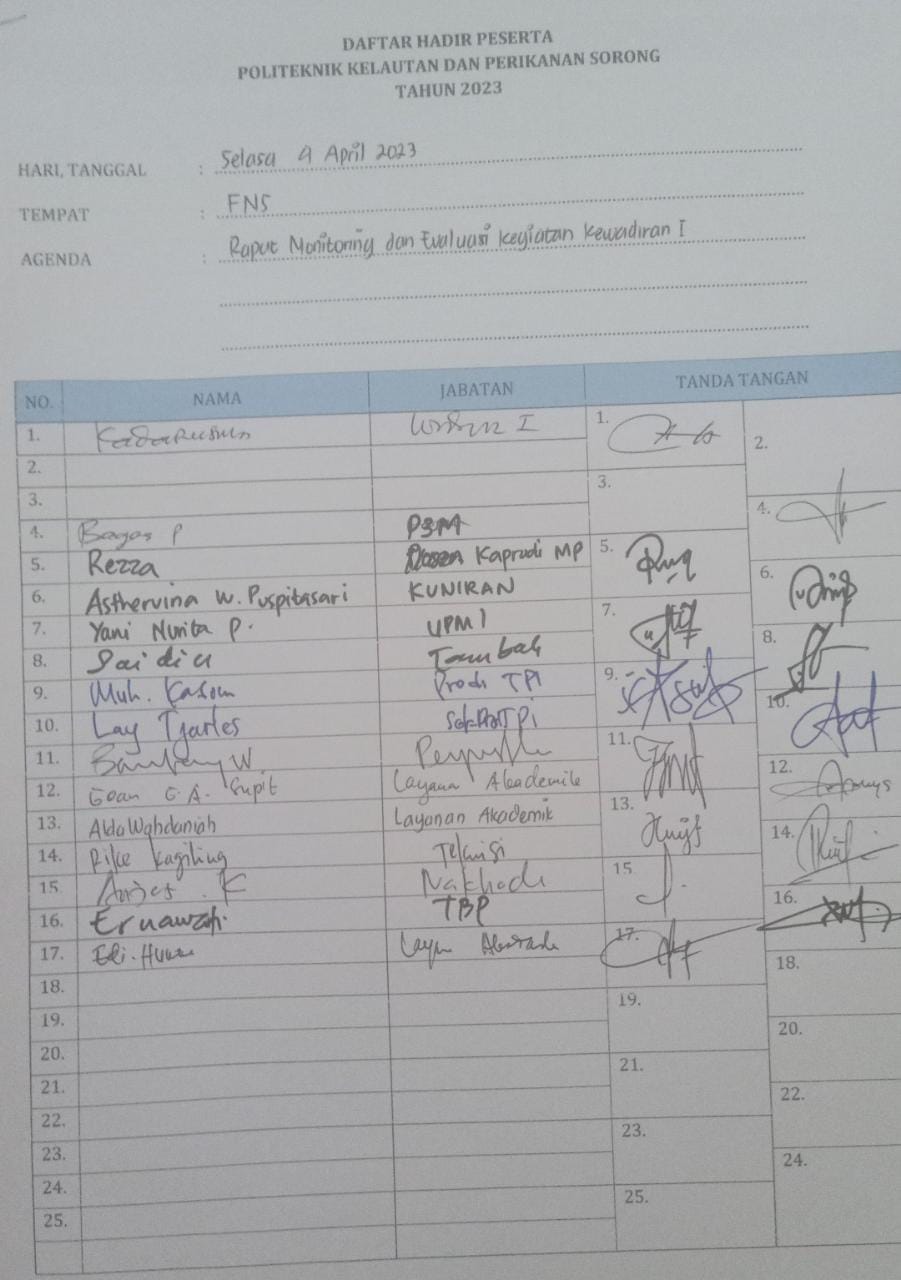 DAFTAR HADIR PESERTA
POLITEKNIK KELAUTAN DAN PERIKANAN SORONG
TAHUN 2023
HARI, TANGGAL : Selasa 4 April 2023
TEMPAT : FNS
AGENDA : Rapat Monitoring dan Evaluasi Kegiatan Kewadiran I
NO. NAMA JABATAN TANDA TANGAN
1. I 1.
2. 2.
3. 3.
4. Bagas P PSM 4.
5. Rezza Dosen Kaprodi MP 5.
6. Asthervina W. Puspitasari KUNIRAN 6.
7. Yani Nurita P. UPMI 7.
8. Saidin Tambak 8.
9. Muh. Prodi TPI 9.
10. Lay Tjarles TPI 10.
11. W 11.
12. G.A. Supit Layanan Akademik 12.
13. Alda Wahdaniah Layanan Akademik 13.
14. Rike Kagiling Teknisi 14.
15. K Nakhoda 15.
16. Ernawati TBP 16.
17. Edi. 17.
18. 18.
19. 19.
20. 20.
21. 21.
22. 22.
23. 23.
24. 24.
25. 25.